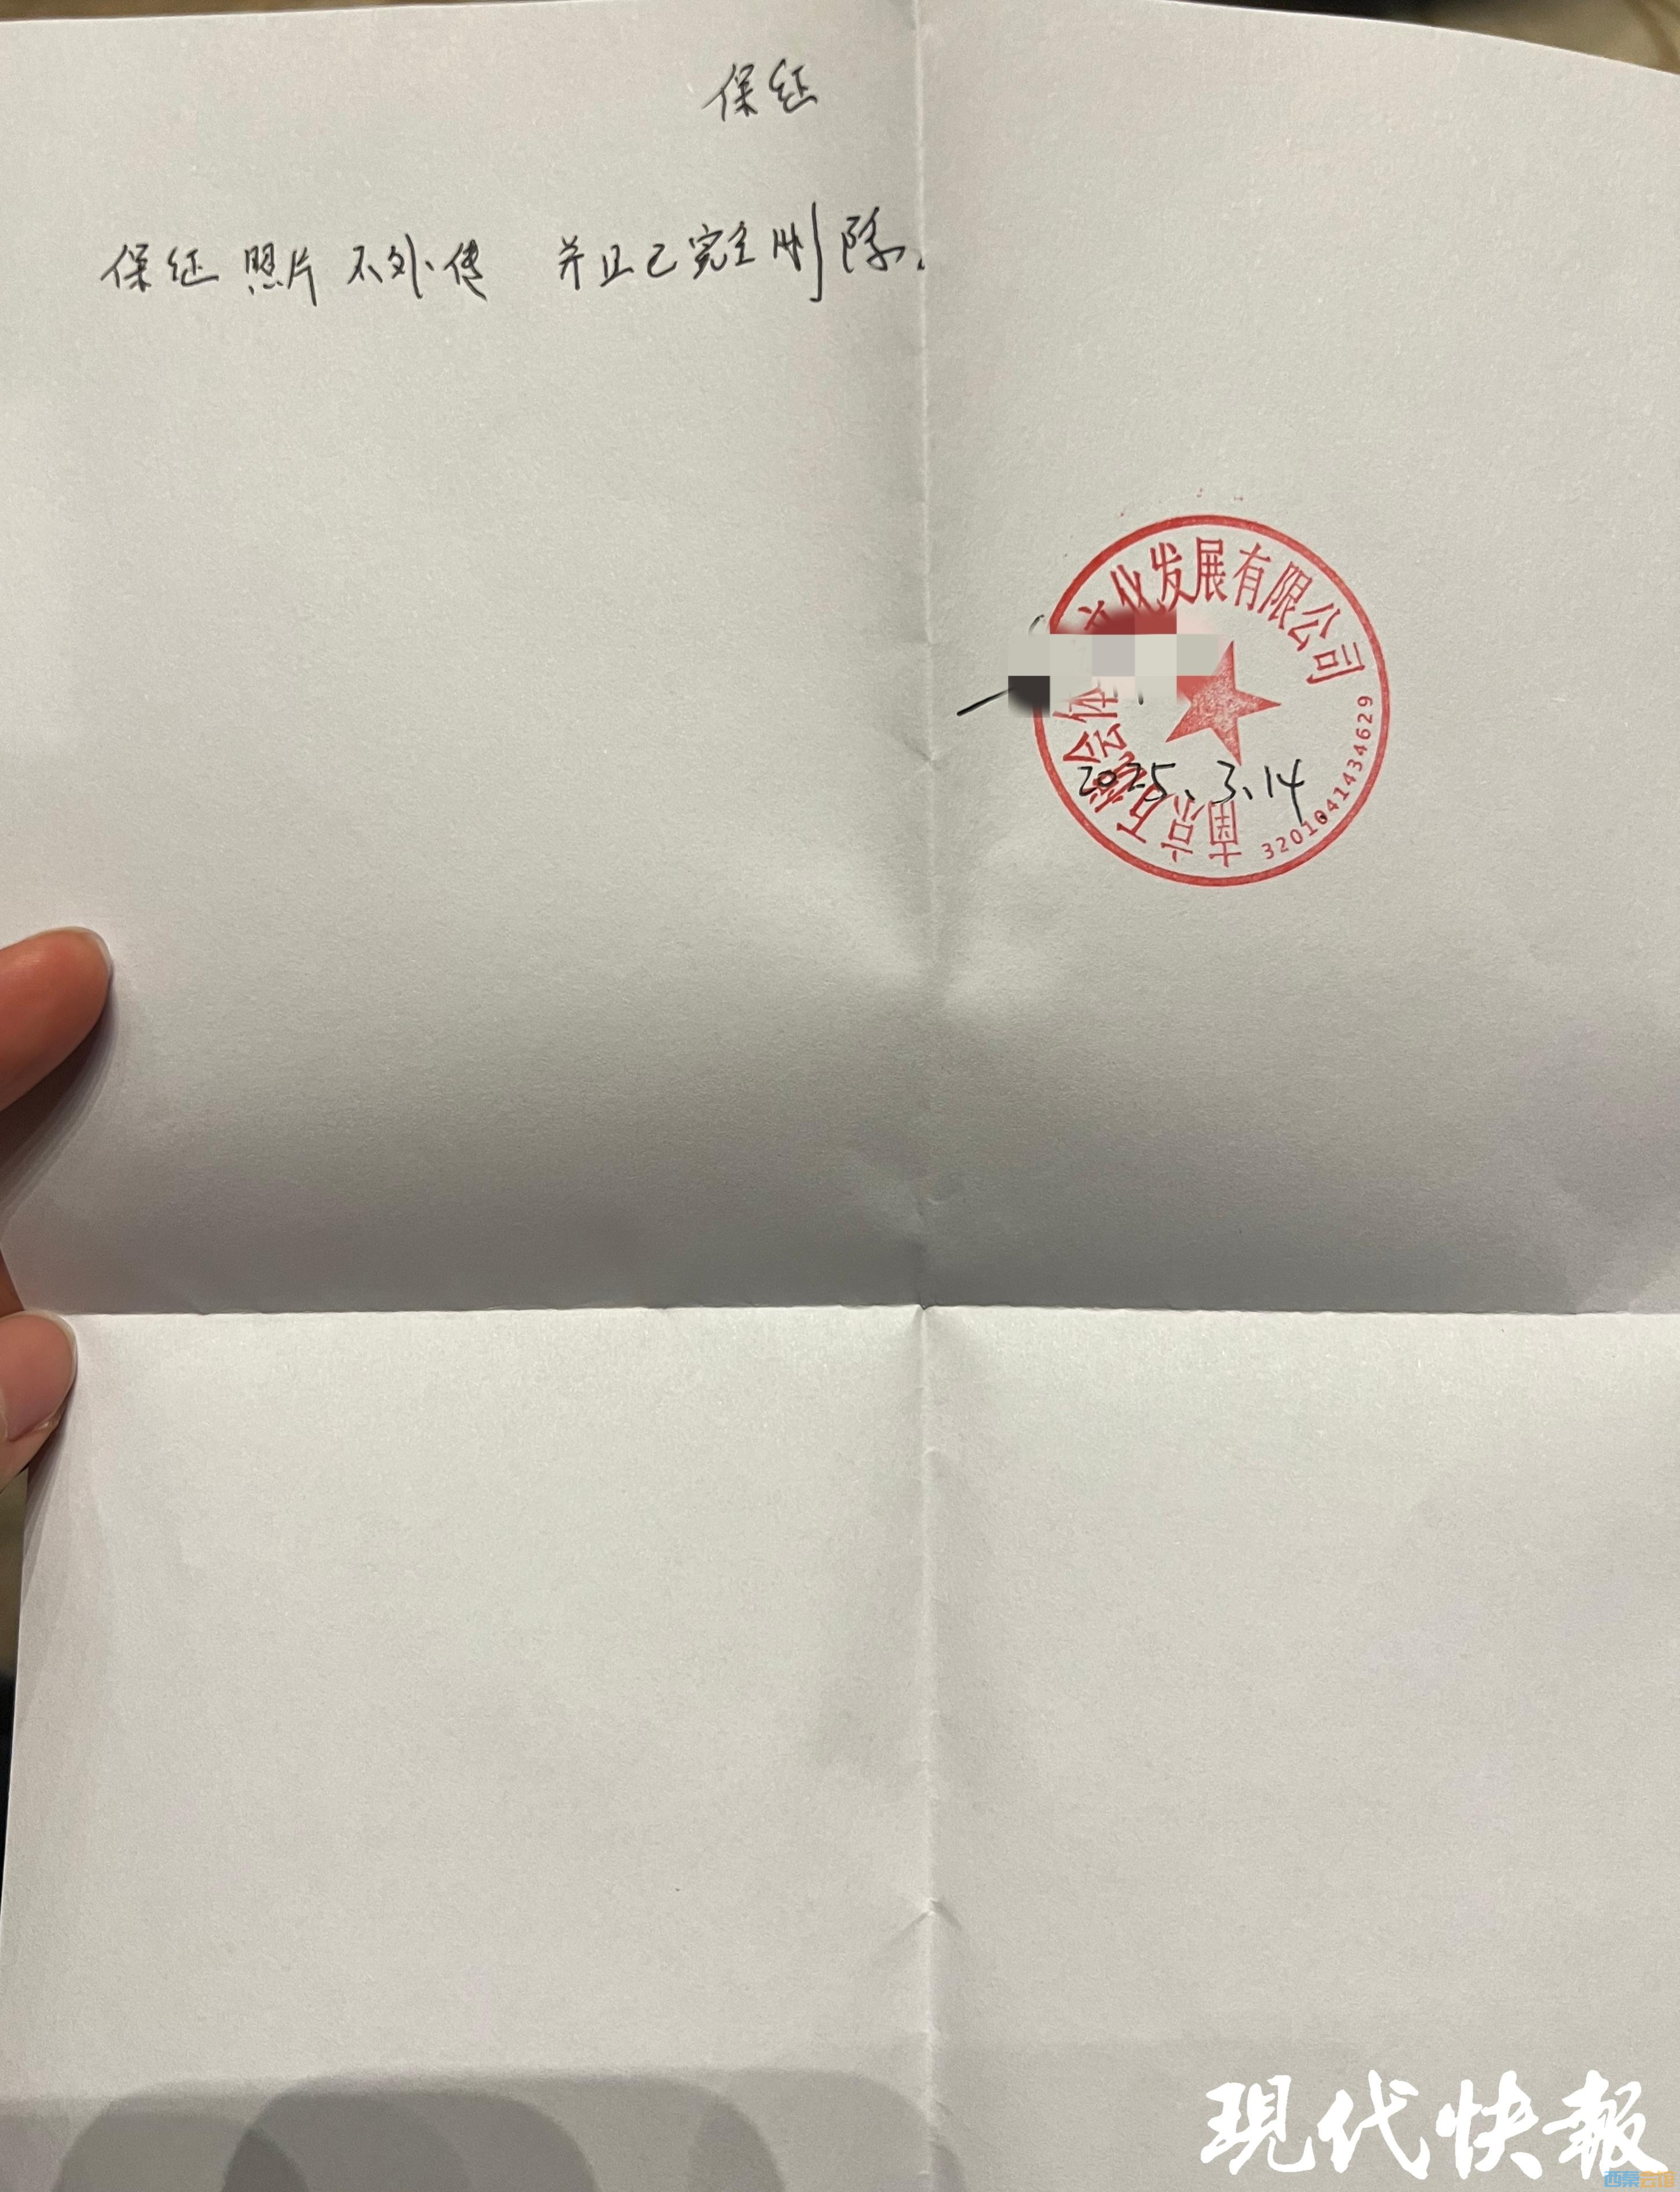 保证
保证照片不外传 并且已完全删除.
南京五台会体 文化发展有限公司
2025.3.14
3201041434629
現代快報
西幕会馆